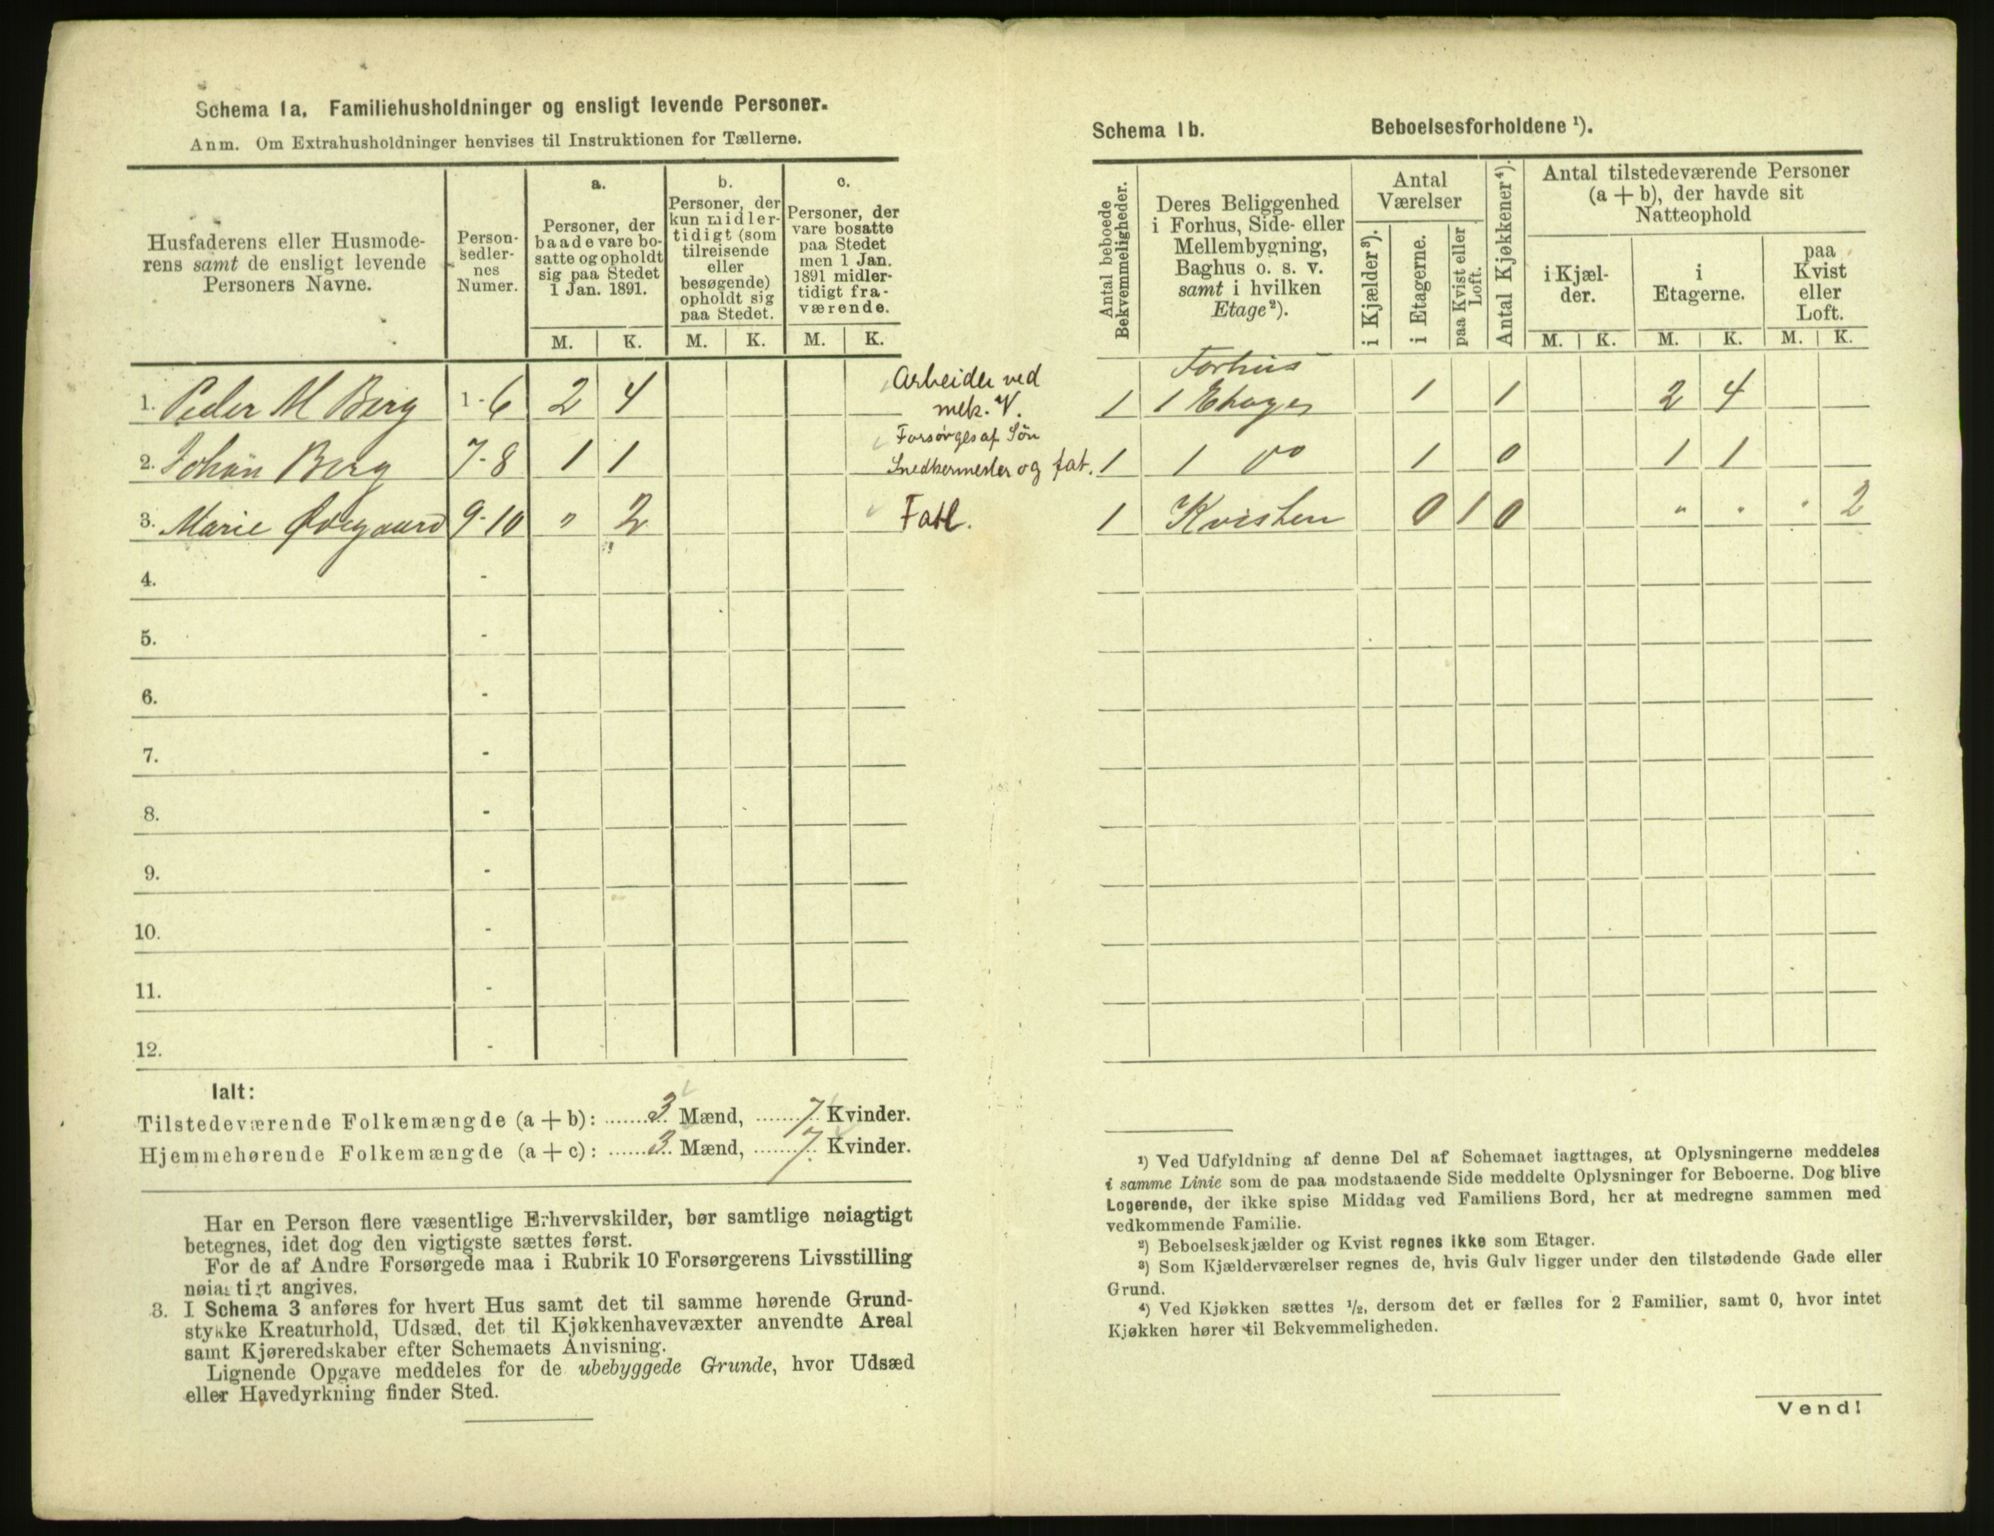 Schema 1a. Familiehusholdninger og ensligt levende Personer.
Anm. Om Extrahusholdninger henvises til Instruktionen for Tællerne.
Husfaderens eller Husmode-
rens samt de ensligt levende
Personers Navne.
Person-
sedler-
nes
Numer.
a.
Personer, der
baade vare bo-
satte og opholdt
sig paa Stedet
1 Jan. 1891.
b.
Personer, der
kun midler-
tidigt (som
tilreisende
eller
besøgende)
opholdt sig
paa Stedet.
c.
Personer, der
vare bosatte
paa Stedet
men 1 Jan.
1891 midler-
tidigt fra-
værende.
M. K. M. K. M. K.
1. Peder M Berg 1-6 2 4 Arbeider ved
mek. V.
2. Johan Berg 7-8 1 1 Forsørges af Søn
Snedkermester og fat.
3. Marie Ødegaard 9-10 " 2 Fatl.
4. -
5. -
6. -
7. -
8. -
9. -
10. -
11. -
12. -
Ialt:
Tilstedeværende Folkemængde (a + b): 3 Mænd, 7 Kvinder.
Hjemmehørende Folkemængde (a + c): 3 Mænd, 7. Kvinder.
Har en Person flere væsentlige Erhvervskilder, bør samtlige nøiagtigt
betegnes, idet dog den vigtigste sættes først.
For de af Andre Forsørgede maa i Rubrik 10 Forsørgerens Livsstilling
nøiagtigt angives.
3. I Schema 3 anføres for hvert Hus samt det til samme hørende Grund-
stykke Kreaturhold, Udsæd, det til Kjøkkenhavevæxter anvendte Areal
samt Kjøreredskaber efter Schemaets Anvisning.
Lignende Opgave meddeles for de ubebyggede Grunde, hvor Udsæd
eller Havedyrkning finder Sted.
Schema 1b. Beboelsesforholdene ¹).
Antal beboede
Bekvemmeligheder.
Deres Beliggenhed
i Forhus, Side- eller
Mellembygning,
Baghus o. s. v.
samt i hvilken
Etage²).
Antal
Værelser
i Kjælder³).
i Etagerne.
paa Kvist eller
Loft.
Antal Kjøkkener⁴).
Antal tilstedeværende Personer
(a + b), der havde sit
Natteophold
i Kjæl-
der.
i
Etagerne.
paa
Kvist
eller
Loft.
M. K. M. K. M. K.
Forhus
1 1 Etager 1 1 2 4
1 1 do 1 0 1 1
1 Kvisten 0 1 0 " " " 2
¹) Ved Udfyldning af denne Del af Schemaet iagttages, at Oplysningerne meddeles
i samme Linie som de paa modstaaende Side meddelte Oplysninger for Beboerne. Dog blive
Logerende, der ikke spise Middag ved Familiens Bord, her at medregne sammen med
vedkommende Familie.
²) Beboelseskjælder og Kvist regnes ikke som Etager.
³) Som Kjælderværelser regnes de, hvis Gulv ligger under den tilstødende Gade eller
Grund.
⁴) Ved Kjøkken sættes ½, dersom det er fælles for 2 Familier, samt 0, hvor intet
Kjøkken hører til Bekvemmeligheden.
Vend!